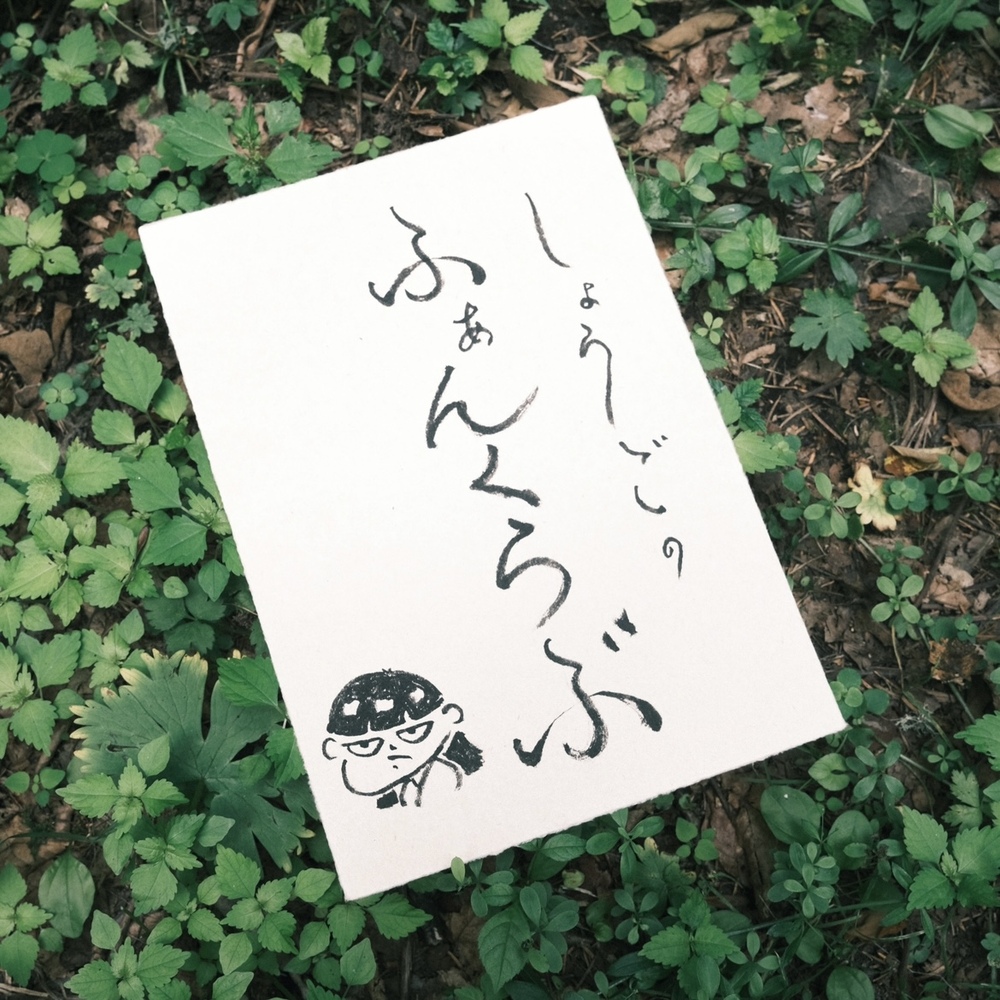 しょうじごの
ふぁんくらぶ